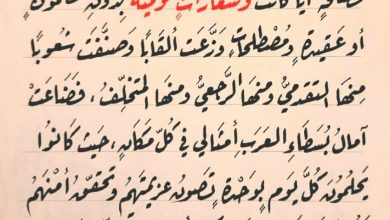 أيًا كانت وشعاراتٍ قوميّة بدون
أو عقيدة، ومصطلحاتٍ وزَّعت ألقابًا وصنَّفت شعوبًا
منها التقدميّ ومنها الرجعيّ ومنها المتخلِّف، فضاعت
آمال بسطاء العرب أمثالي في كلّ مكانٍ، حيث كانوا
يحلمون كلّ يوم بوحدة تصون عزيمتهم وتحقق أمنهم